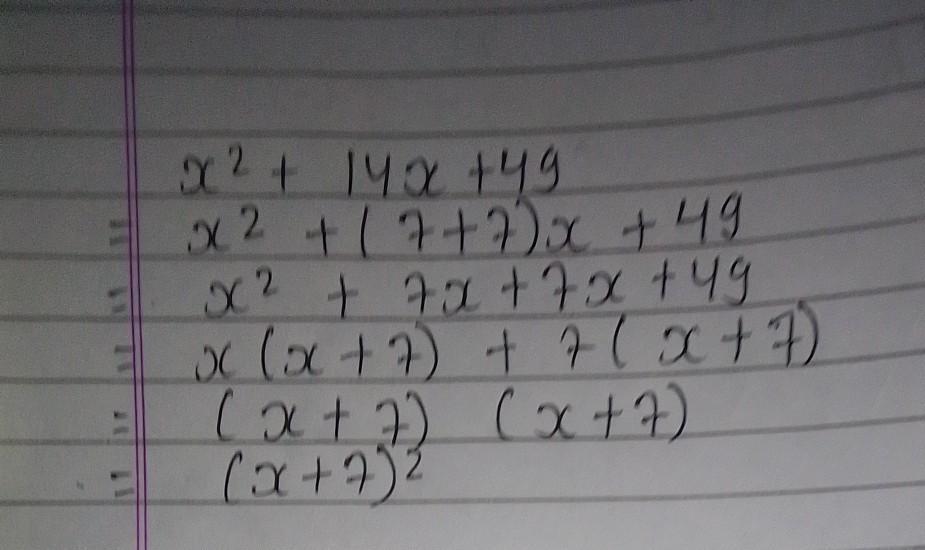 x² + 14x + 49
= x² + (7+7)x + 49
= x² + 7x + 7x + 49
= x(x+7) + 7(x+7)
= (x+7) (x+7)
= (x+7)²